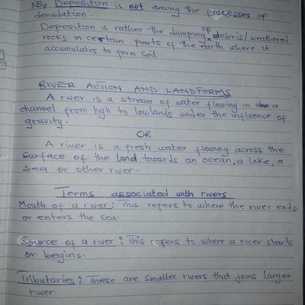 NB: Deposition is not among the processes of
denudation.
Deposition is rather the dumping of debris/weathered
rocks in certain parts of the earth where it
accumulates to form soil.
RIVER ACTION AND LANDFORMS
A river is a stream of water flowing in a
channel from high to lowlands under the influence of
gravity.
OR
A river is a fresh water flowing across the
surface of the land towards an ocean, a lake, a
sea or other river.
Terms associated with rivers
Mouth of a river: This refers to where the river ends
or enters the sea.
Source of a river: This refers to where a river starts
or begins.
Tributaries: These are smaller rivers that joins larger
river